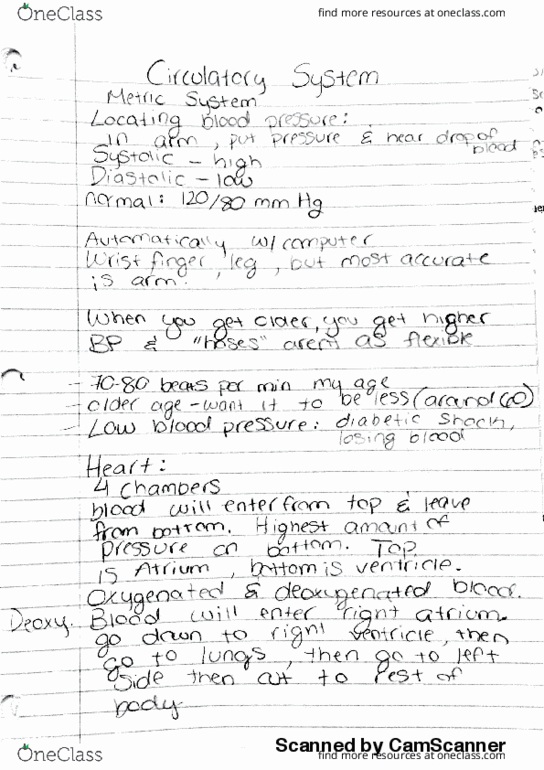 OneClass
find more resources at oneclass.com
Circulatory System
Metric System
Locating blood pressure:
in arm, put pressure & hear drop of
blood
Systolic - high
Diastolic - low
normal: 120/80 mm Hg
Automatically w/ computer
Wrist finger, leg, but most accurate
is arm.
When you get older, you get higher
BP & "hoses" arent as flexible
- 70-80 beats per min my age
- older age - want it to be less (around 60)
- Low blood pressure: diabetic shock,
losing blood
Heart:
4 chambers
blood will enter from top & leave
from bottom. Highest amount of
pressure on bottom. Top
is Atrium, bottom is ventricle.
Oxygenated & deoxygenated blood.
Deoxy. Blood will enter right atrium.
go down to right ventricle, then
go to lungs, then go to left
side then out to rest of
body
Scanned by CamScanner
OneClass
find more resources at oneclass.com